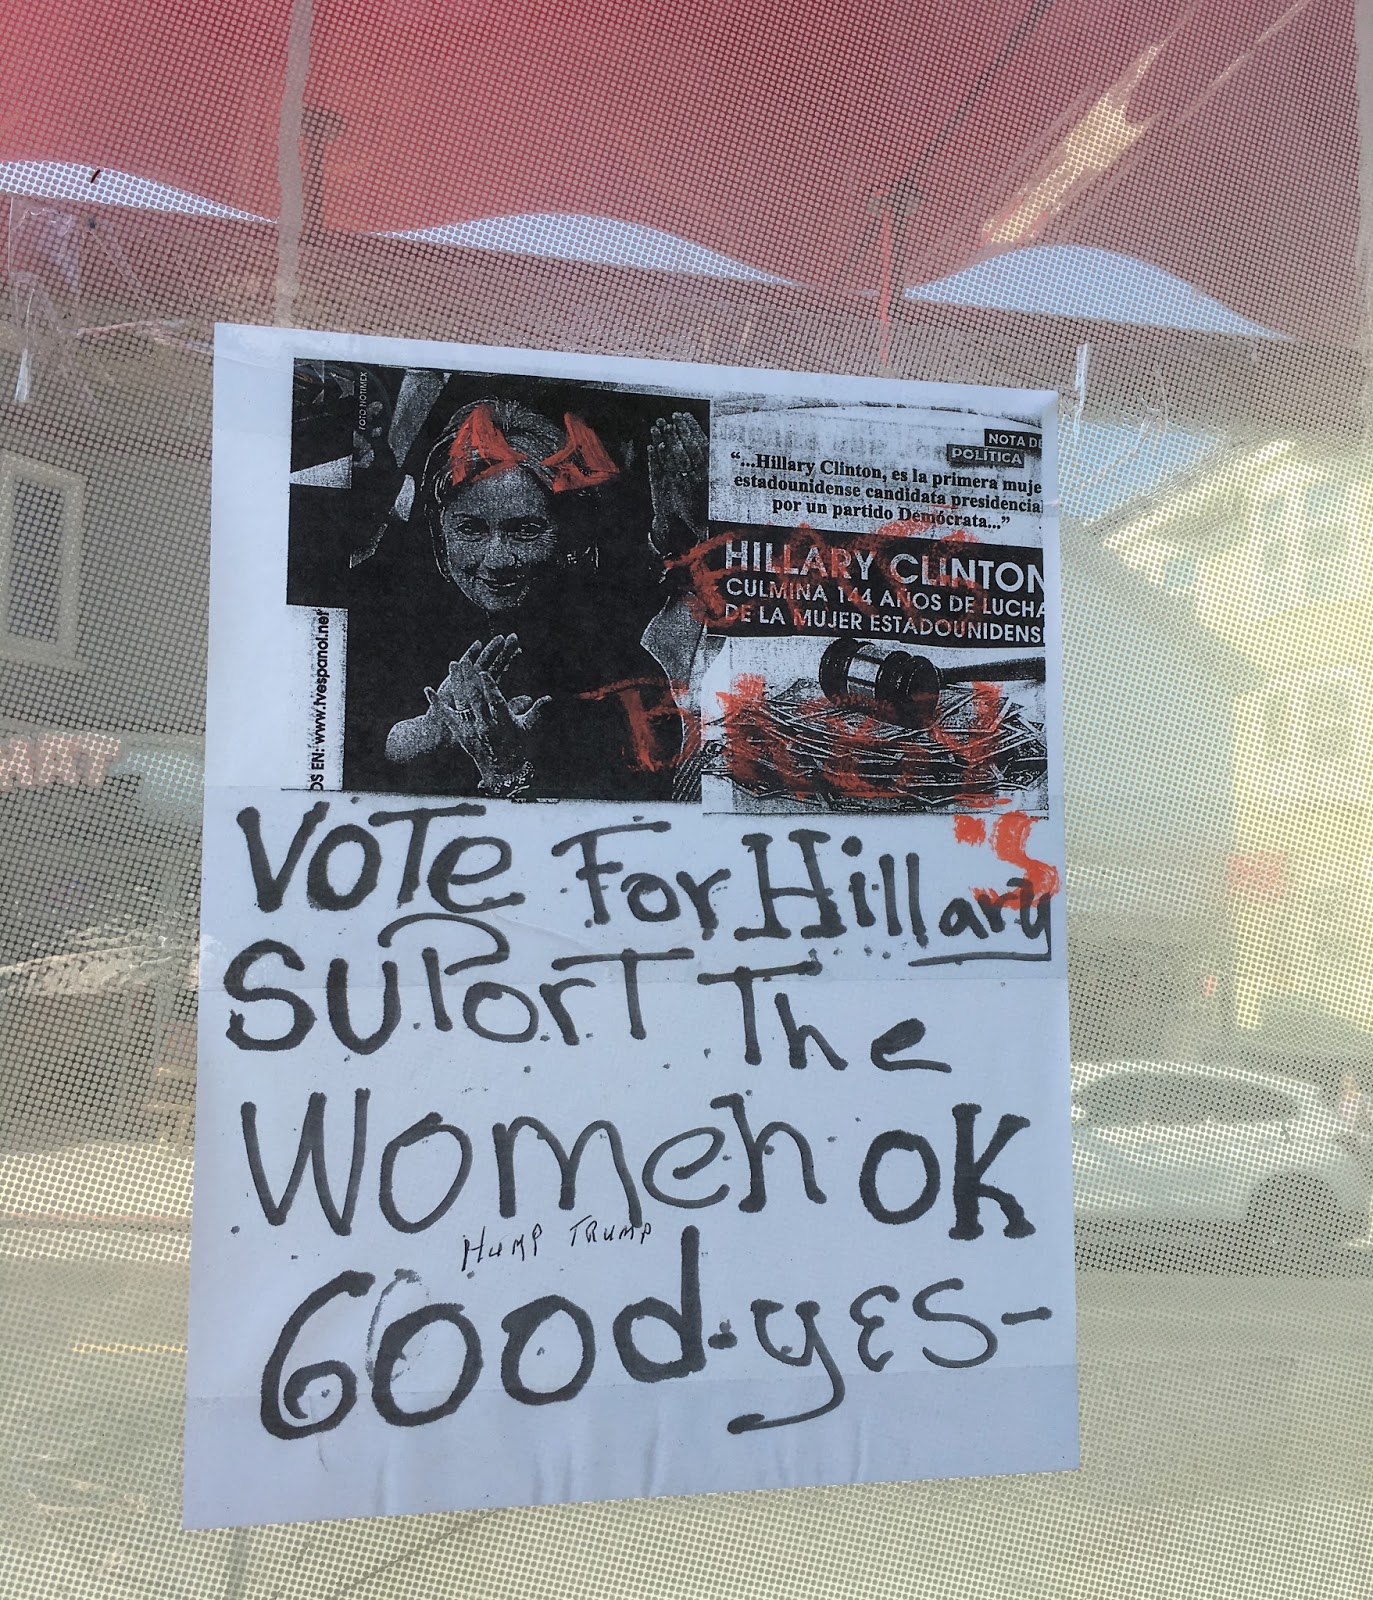 FOTO NOTIMEX
NOTA DE
POLÍTICA
“...Hillary Clinton, es la primera muje
estadounidense candidata presidencial
por un partido Demócrata...”
HILLARY CLINTON
CULMINA 144 AÑOS DE LUCHA
DE LA MUJER ESTADOUNIDENS
OS EN: www.tvespanol.net
VOTe For Hillary
SUPorT The
Women OK
HUMP TRUMP
Good-yES-